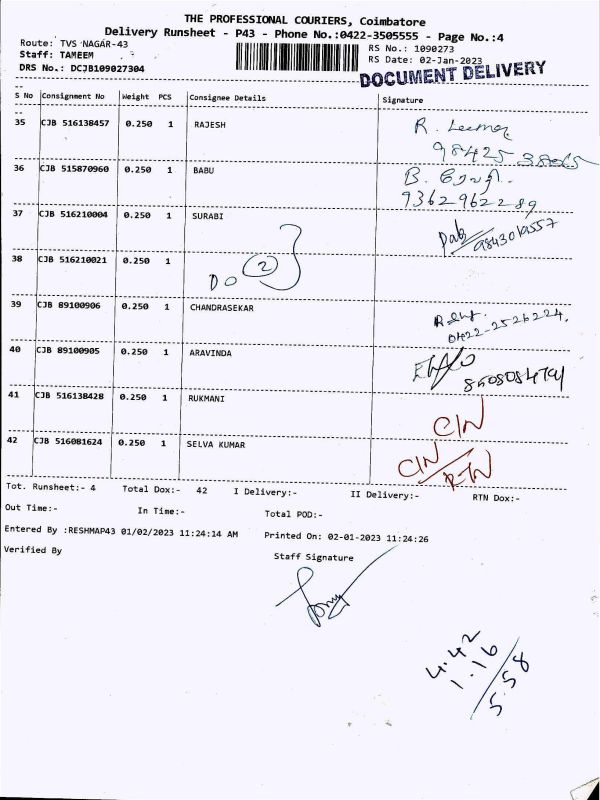 THE PROFESSIONAL COURIERS, Coimbatore
Delivery Runsheet - P43 - Phone No.:0422-3505555 - Page No.:4
Route: TVS NAGAR-43 RS No.: 1090273
Staff: TAMEEM RS Date: 02-Jan-2023
DRS No.: DCJB109027304
DOCUMENT DELIVERY
S No Consignment No Weight PCS Consignee Details Signature
35 CJB 516138457 0.250 1 RAJESH R.
98425 38065
36 CJB 515870960 0.250 1 BABU B.
9362962289
37 CJB 516210004 0.250 1 SURABI
9843019557
38 CJB 516210021 0.250 1
DO 2
39 CJB 89100906 0.250 1 CHANDRASEKAR
0422-2526224.
40 CJB 89100905 0.250 1 ARAVINDA
41 CJB 516138428 0.250 1 RUKMANI C/N
42 CJB 516081624 0.250 1 SELVA KUMAR C/N
RTN
Tot. Runsheet:- 4 Total Dox:- 42 I Delivery:- II Delivery:- RTN Dox:-
Out Time:- In Time:- Total POD:-
Entered By :RESHMAP43 01/02/2023 11:24:14 AM Printed On: 02-01-2023 11:24:26
Verified By Staff Signature
4.42
1.16
5.58